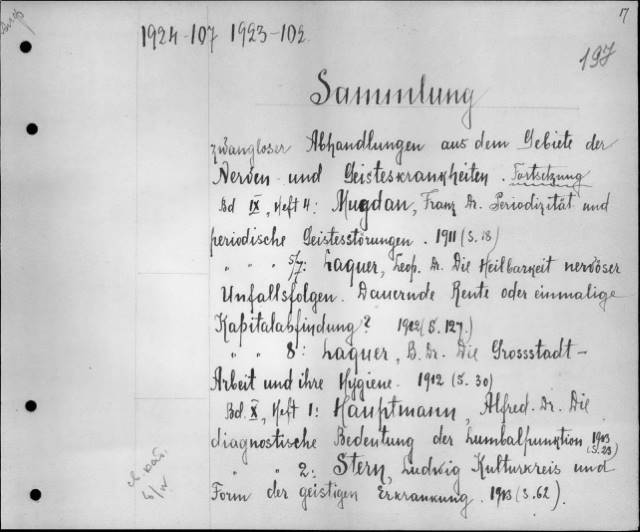 7
1924-107 1923-102
197
Sammlung
zwangloser Abhandlungen aus dem Gebiete der
Nerven und Geisteskrankheiten. Fortsetzung
Bd IX, Heft 4: Mugdan, Franz Dr. Periodizität und
periodische Geistesstörungen. 1911 (S. 18)
" " " 5/7: Laquer, Leop. Dr. Die Heilbarkeit nervöser
Unfallsfolgen. Dauernde Rente oder einmalige
Kapitalabfindung? 1912 (S. 127.)
" " 8: Laquer, B. Dr. Die Grossstadt-
Arbeit und ihre Hygiene. 1912 (S. 30)
Bd. X, Heft 1: Hauptmann, Alfred. Dr. Die
diagnostische Bedeutung der Lumbalpunktion 1913
(S. 28)
" " 2: Stern, Ludwig Kulturkreis und
Form der geistigen Erkrankung. 1913 (S. 62).